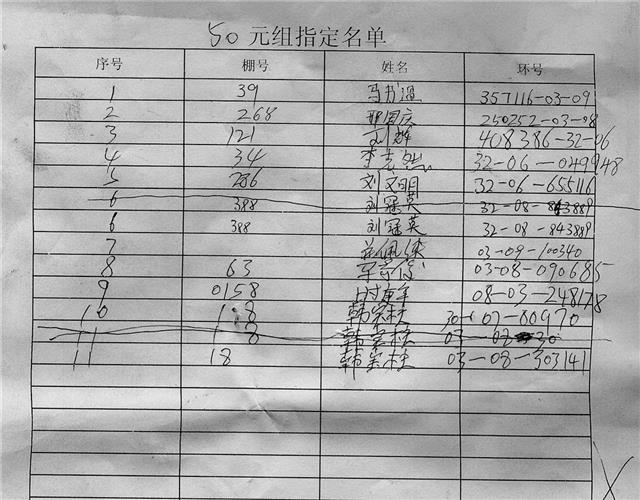 50元组指定名单
序号 棚号 姓名 环号
1 39 马 357116-03-09
2 268 邢国庆 250252-03-08
3 121 刘辉 408386-32-06
4 34 李 32-06-049948
5 286 刘文明 32-06-655116
6 388 刘冠英 32-08-843889
6 388 刘冠英 32-08-843889
7 佩侠 03-09-100340
8 63 03-08-090685
9 0158 时 年 08-03-248178
10 18 韩宗柱 07-80970
11 18 韩宗柱 03-08 30
11 18 韩宗柱 03-08-303141